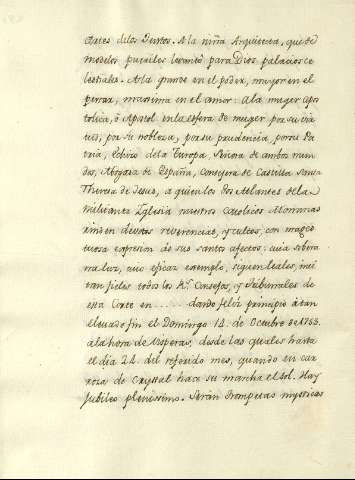 Artes de los Santos. A la niña Arquitecta, que de
modelos pueriles levantó para Dios palacios ce-
lestiales. A la grande en el poder, mayor en el
penar, maxima en el amor: a la muger apos-
tolica, ò Apostol en la esfera de muger por su vir-
tud, por su nobleza, por su prudencia, por su Pa-
tria, de la Europa, Señora de ambos mun-
dos, Abogada de España, Consejera de Castilla Santa
Theresa de Jesus, a quien los dos Atlantes de la
Militante Iglesia nuestros Catolicos Monarcas
rinden devotas reverencias, y cultos, con mages-
tuosa expresion de sus santos afectos: cuia sobera-
na luz, cuio eficaz exemplo, siguen leales, imi-
tan fieles todos los Rs. Consejos, y Tribunales de
esta Corte en ...... dando feliz principio à tan
elevado fin el Domingo 14. de Octubre de 1753.
a la hora de Visperas, desde las quales hasta
el dia 24. del referido mes, quando en car-
roza de Crystal hace su marcha el sol. Hay
Jubileo plenissimo. Serán Trompetas mysticas